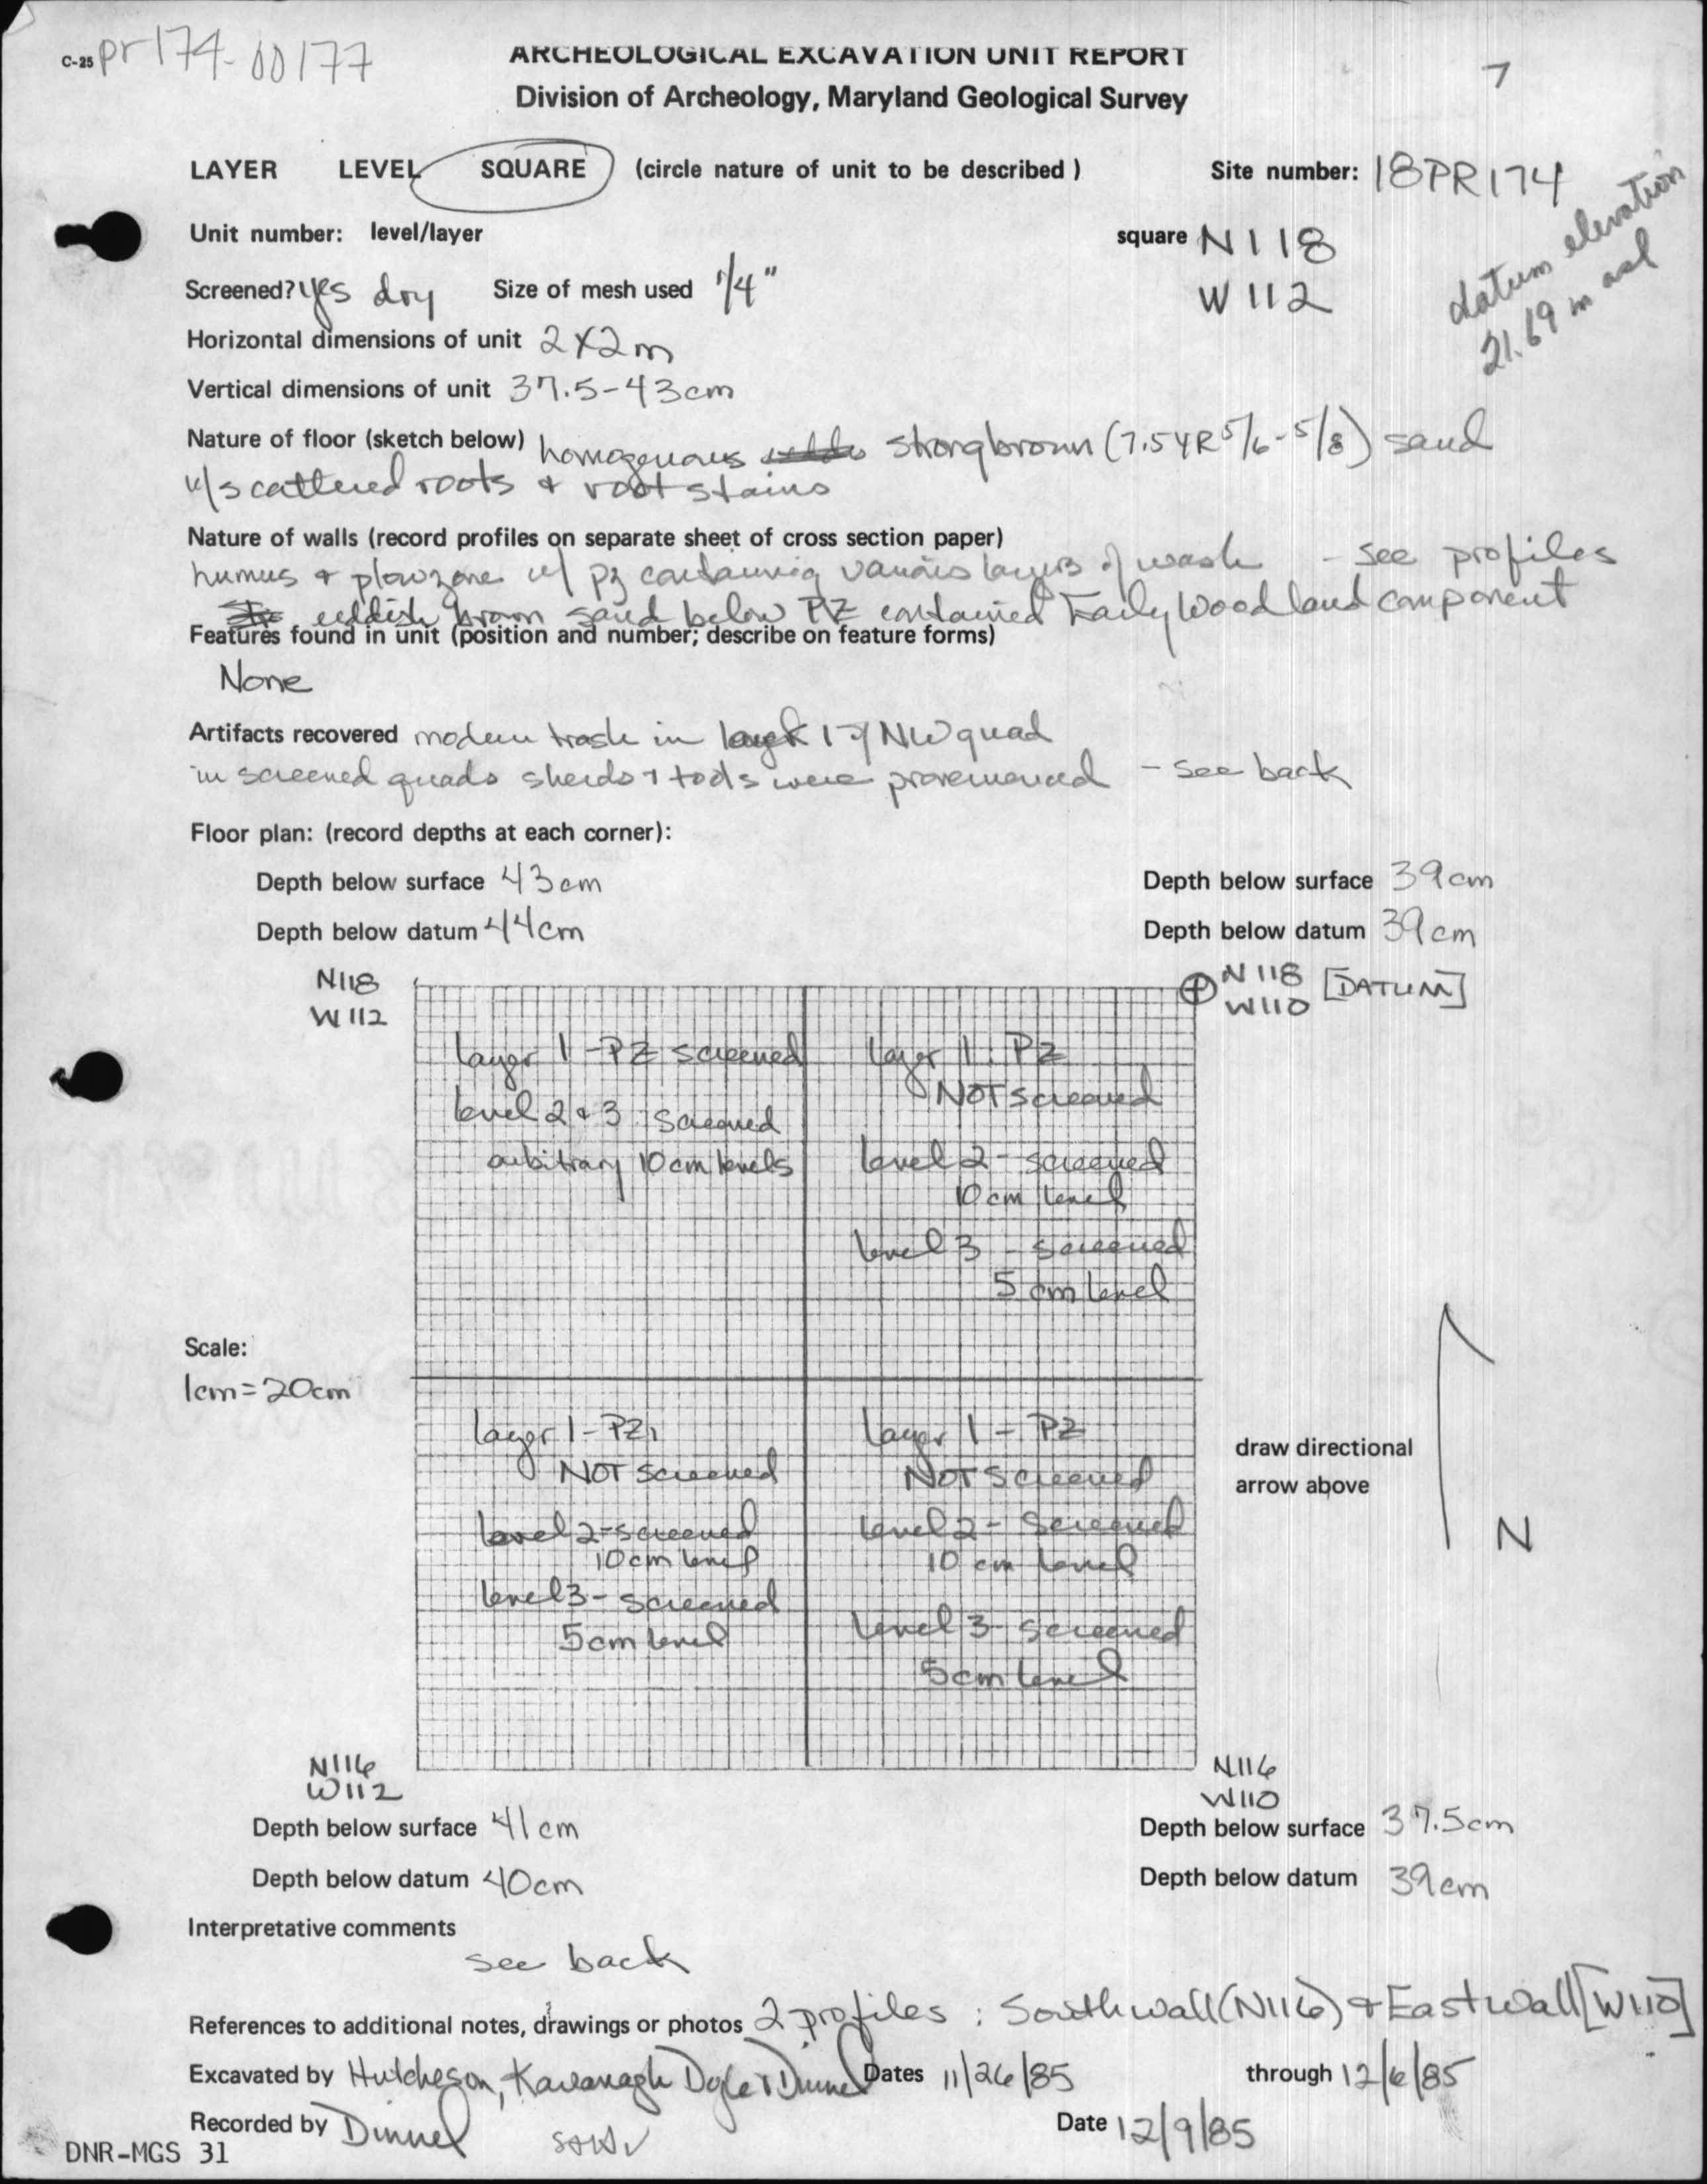 C-25 pr174-00177
ARCHEOLOGICAL EXCAVATION UNIT REPORT
7
Division of Archeology, Maryland Geological Survey
LAYER LEVEL SQUARE (circle nature of unit to be described ) Site number: 18PR174
datum elevation
21.69 m asl
Unit number: level/layer square N118
Screened? yes dry Size of mesh used 1/4" W112
Horizontal dimensions of unit 2X2m
Vertical dimensions of unit 37.5-43cm
Nature of floor (sketch below) homogenous strong brown (7.5YR 5/6-5/8) sand
w/scattered roots + root stains
Nature of walls (record profiles on separate sheet of cross section paper)
humus + plowzone w/ pz containing various layers of wash - see profiles
reddish brown sand below PZ contained Early Woodland component
Features found in unit (position and number; describe on feature forms)
None
Artifacts recovered modern trash in layer 1 of NW quad
in screened quads sherds + tools were provenienced - see back
Floor plan: (record depths at each corner):
Depth below surface 43cm Depth below surface 39cm
Depth below datum 44cm Depth below datum 39cm
N118 N118 [DATUM]
W112 W110
layer 1-PZ screened
level 2+3 screened
arbitrary 10cm levels
layer 1: PZ
NOT screened
level 2- screened
10cm level
level 3 - screened
5 cm level
Scale:
1cm=20cm
layer 1-PZ
NOT screened
level 2-screened
10cm level
level 3- screened
5cm level
layer 1 - PZ
NOT screened
level 2- screened
10 cm level
level 3- screened
5cm level
draw directional
arrow above
N
N116 N116
W112 W110
Depth below surface 41cm Depth below surface 37.5cm
Depth below datum 40cm Depth below datum 39cm
Interpretative comments
see back
References to additional notes, drawings or photos 2 profiles : South wall(N116) + East wall[W110]
Excavated by Hutcheson, Kavanagh Doyle + Dinnel Dates 11/26/85 through 12/6/85
Recorded by Dinnel Date 12/9/85
DNR-MGS 31